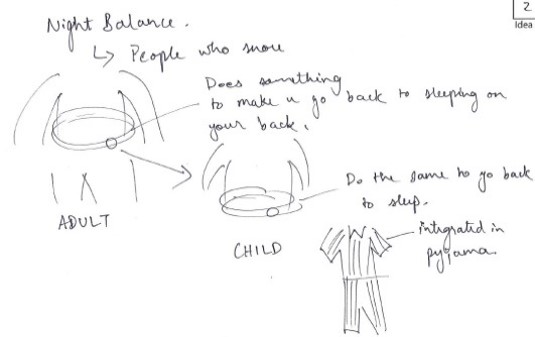 2
Idea
Night Balance.
↳ People who snore
Does something
to make u go back to sleeping on
your back.
ADULT
Do the same to go back
to sleep.
CHILD
integrated in
pyjama.